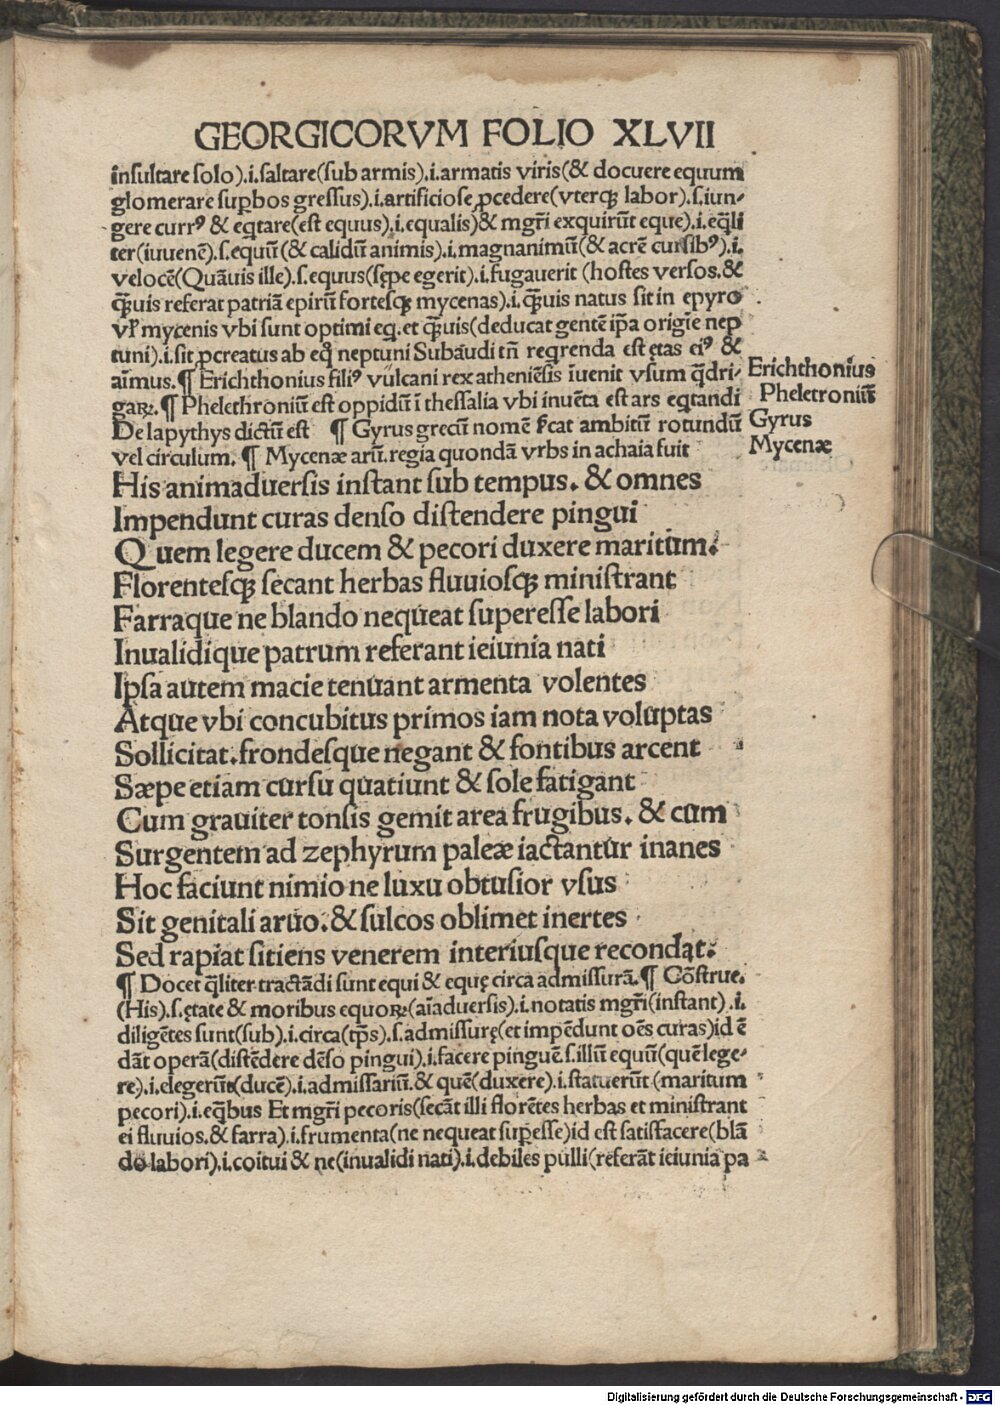 GEORGICORVM FOLIO XLVII
insultare solo).i.saltare(sub armis).i.armatis viris(& docuere equum
glomerare suꝑbos gressus).i.artificiose ꝓcedere(vterqꝫ labor).s.iun-
gere currꝰ & eq̃tare(est equus).i.equalis)& mgr̃i exquirũt eque).i.eq̃li
ter(iuuenẽ).s.equũ(& calidũ animis).i.magnanimũ(& acrẽ cursibꝰ).i.
velocẽ(Quãuis ille).s.equus(sępe egerit).i.fugauerit (hostes versos.&
q̃uis referat patriã epirũ fortesqꝫ mycenas).i.q̃uis natus sit in epyro
vl̃ mycenis vbi sunt optimi eq̃.et q̃uis(deducat gentẽ ip̃a origĩe nep
tuni).i.sit ꝓcreatus ab eq̃ neptuni Subaudi tñ req̃renda est ętas eiꝰ &
aĩmus.¶ Erichthonius filiꝰ vulcani rex atheniẽsis ĩuenit vsum q̃dri-
gaꝝ.¶ Phelethroniũ est oppidũ ĩ thessalia vbi inuẽta est ars eq̃tandi
De lapythys dictũ est ¶ Gyrus grecũ nomẽ s̃cat ambitũ rotundũ
vel circulum. ¶ Mycenæ arũ.regia quondã vrbs in achaia fuit
Erichthonius
Pheletroniũ
Gyrus
Mycenæ
His animaduersis instant sub tempus. & omnes
Impendunt curas denso distendere pingui
Quem legere ducem & pecori duxere maritum.
Florentesqꝫ secant herbas fluuiosqꝫ ministrant
Farraque ne blando nequeat superesse labori
Inualidique patrum referant ieiunia nati
Ipsa autem macie tenuant armenta volentes
Atque vbi concubitus primos iam nota voluptas
Sollicitat.frondesque negant & fontibus arcent
Sæpe etiam cursu quatiunt & sole fatigant
Cum grauiter tonsis gemit area frugibus. & cum
Surgentem ad zephyrum paleæ iactantur inanes
Hoc faciunt nimio ne luxu obtusior vsus
Sit genitali aruo.& sulcos oblimet inertes
Sed rapiat sitiens venerem interiusque recondat.
¶ Docet q̃liter tractãdi sunt equi & equę circa admissurã.¶ Cõstrue.
(His).s.ętate & moribus equoꝝ(aĩaduersis).i.notatis mgr̃i(instant).i.
diligẽtes sunt(sub).i.circa(tp̃s).s.admissurę(et impẽdunt oẽs curas)id ẽ
dãt operã(distẽdere dẽso pingui).i.facere pinguẽ.s.illũ equũ(quẽ lege-
re).i.elegerũt(ducẽ).i.admissariũ.& quẽ(duxere).i.statuerũt (maritum
pecori).i.eq̃bus Et mgr̃i pecoris(secãt illi florẽtes herbas et ministrant
ei fluuios.& farra).i.frumenta(ne nequeat suꝑesse)id est satisfacere(blã
do labori).i.coitui & ne(inualidi nati).i.debiles pulli(referãt ieiunia pa
Digitalisierung gefördert durch die Deutsche Forschungsgemeinschaft - DFG